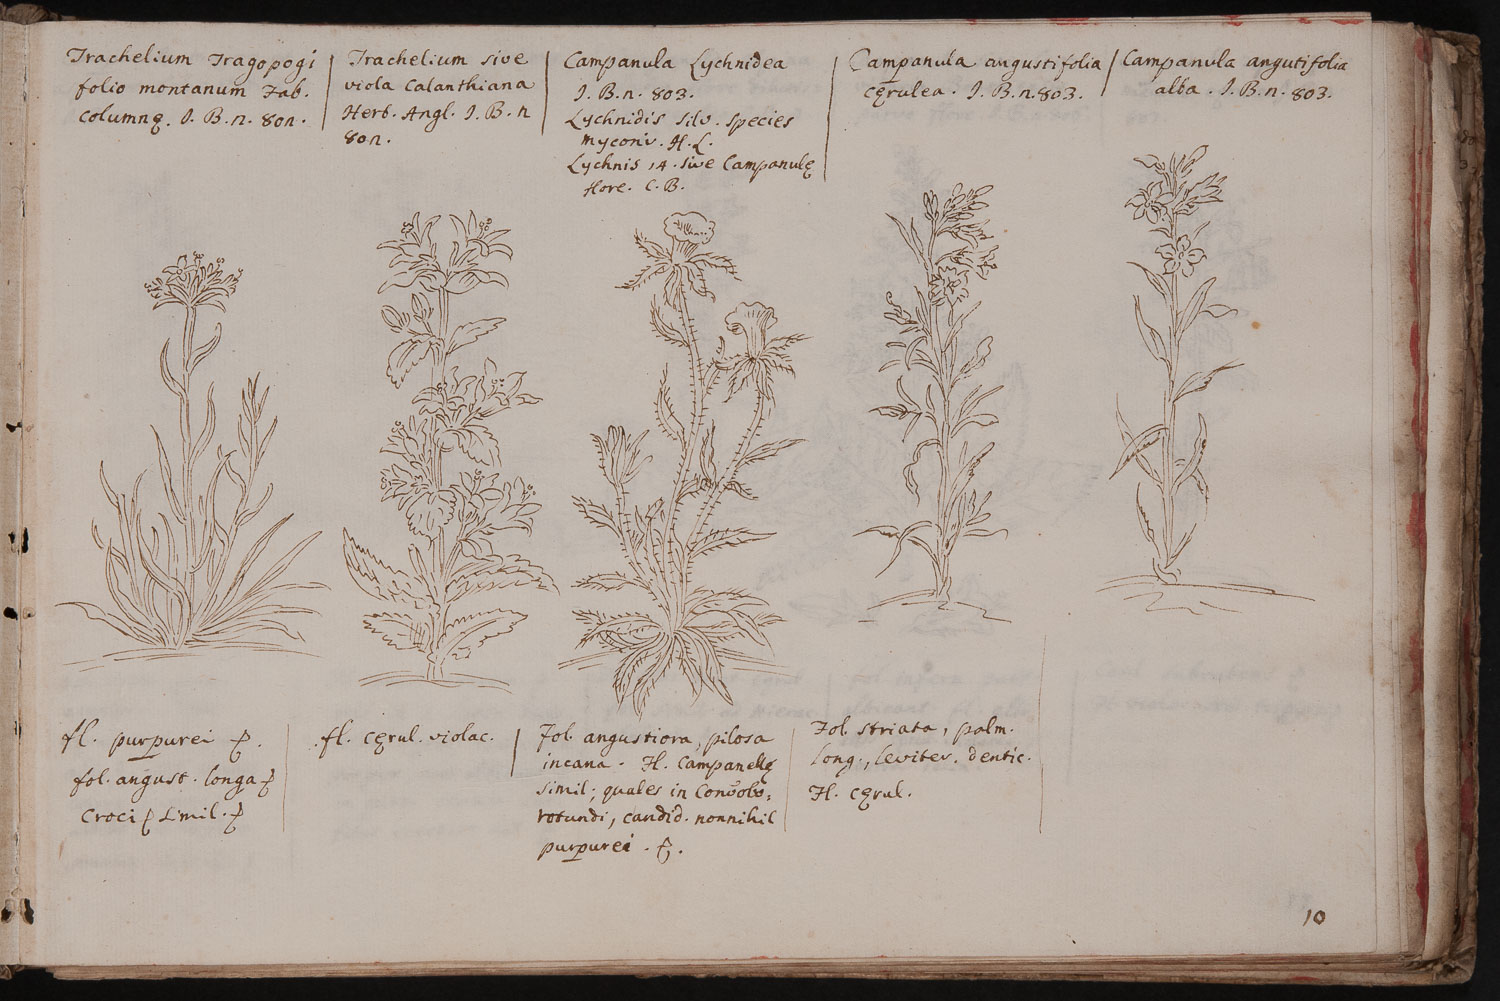 Trachelium Tragopogi
folio montanum Fab.
columnę. I. B. n. 801.
Trachelium sive
viola Calanthiana
Herb. Angl. I. B. n
801.
Campanula Lychnidea
I. B. n. 803.
Lychnidis silv. species
myconi. H. L.
Lychnis 14. sive Campanulę
flore. C. B.
Campanula angustifolia
cęrulea. I. B. n. 803.
Campanula angutifolia
alba. I. B. n. 803.
fl. purpurei
fol. angust. longa
Croci simil.
fl. cęrul. violac.
Fol. angustiora, pilosa
incana. fl. Campanellę
simil; quales in Convolv.
rotundi, candid. nonnihil
purpurei.
Fol. striata, palm.
long., leviter. dentic.
fl. cęrul.
10